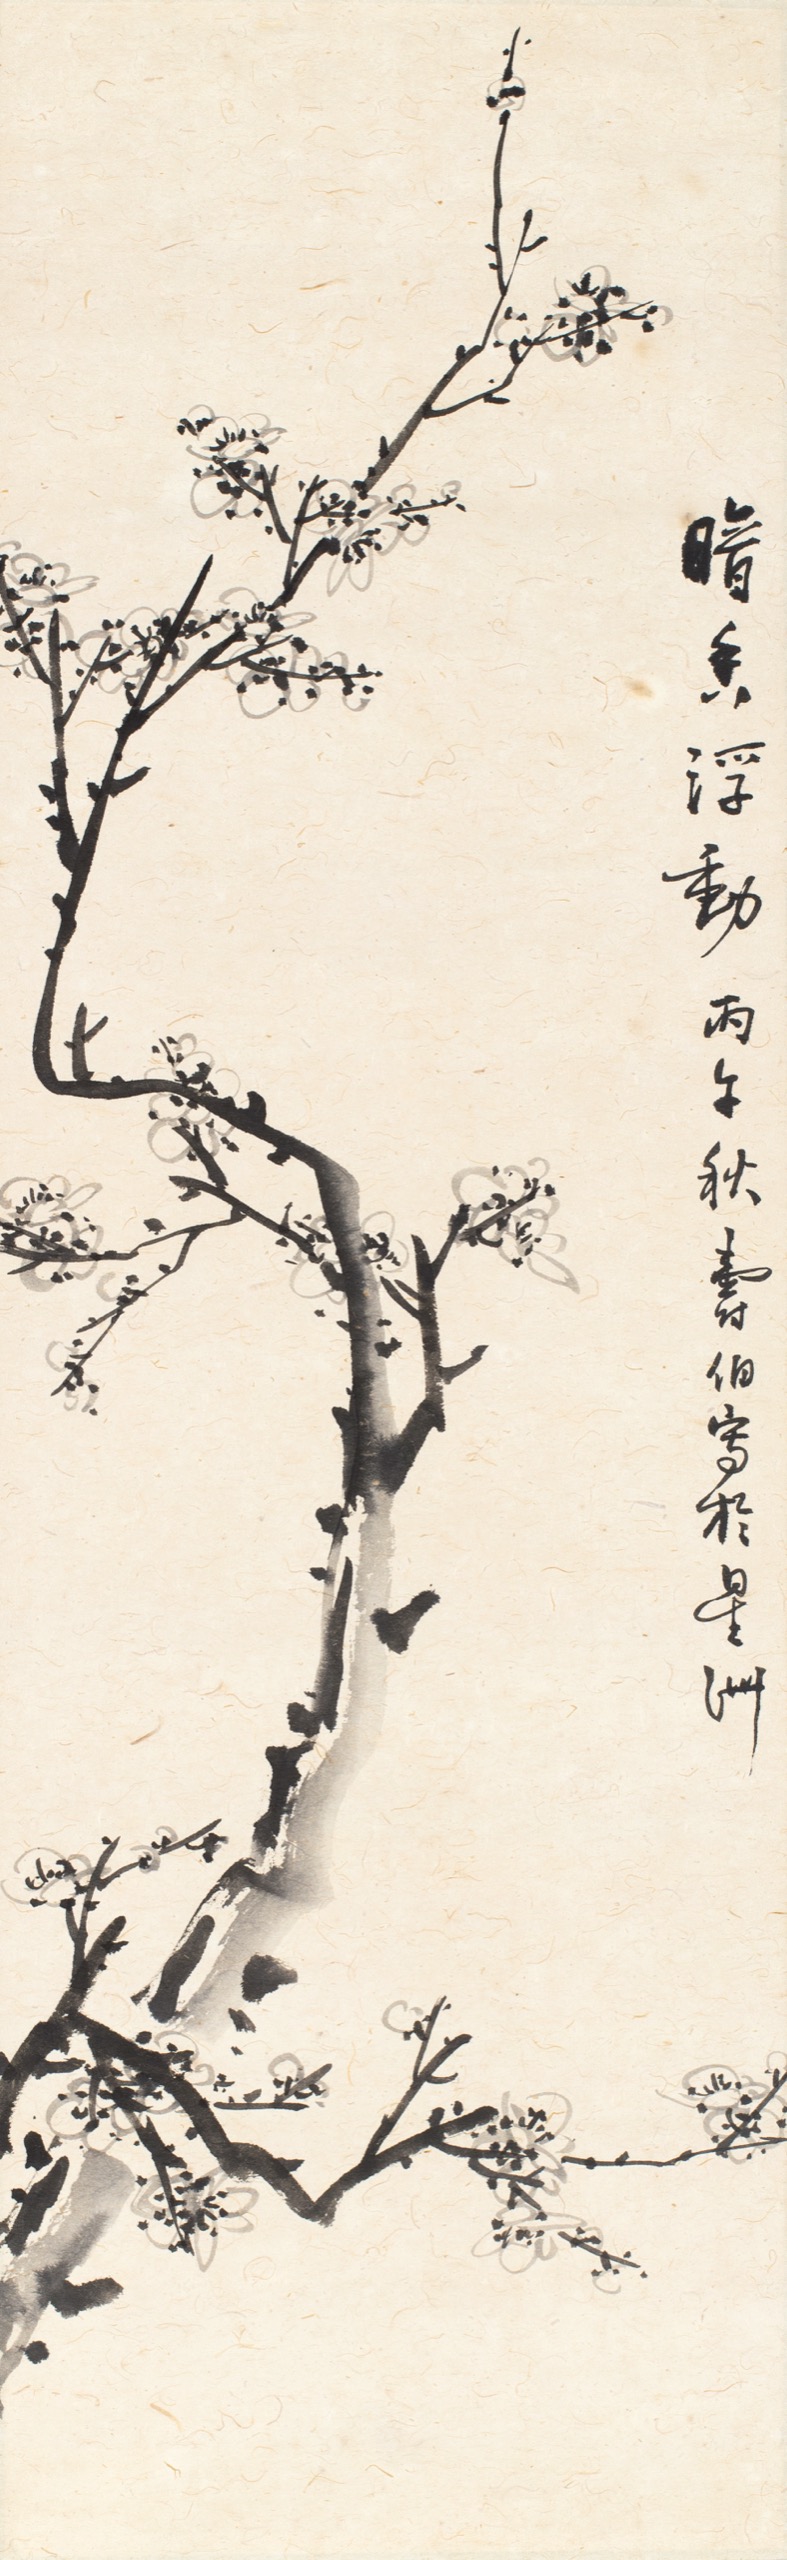 暗香浮動 丙午秋 壽伯寫於星洲